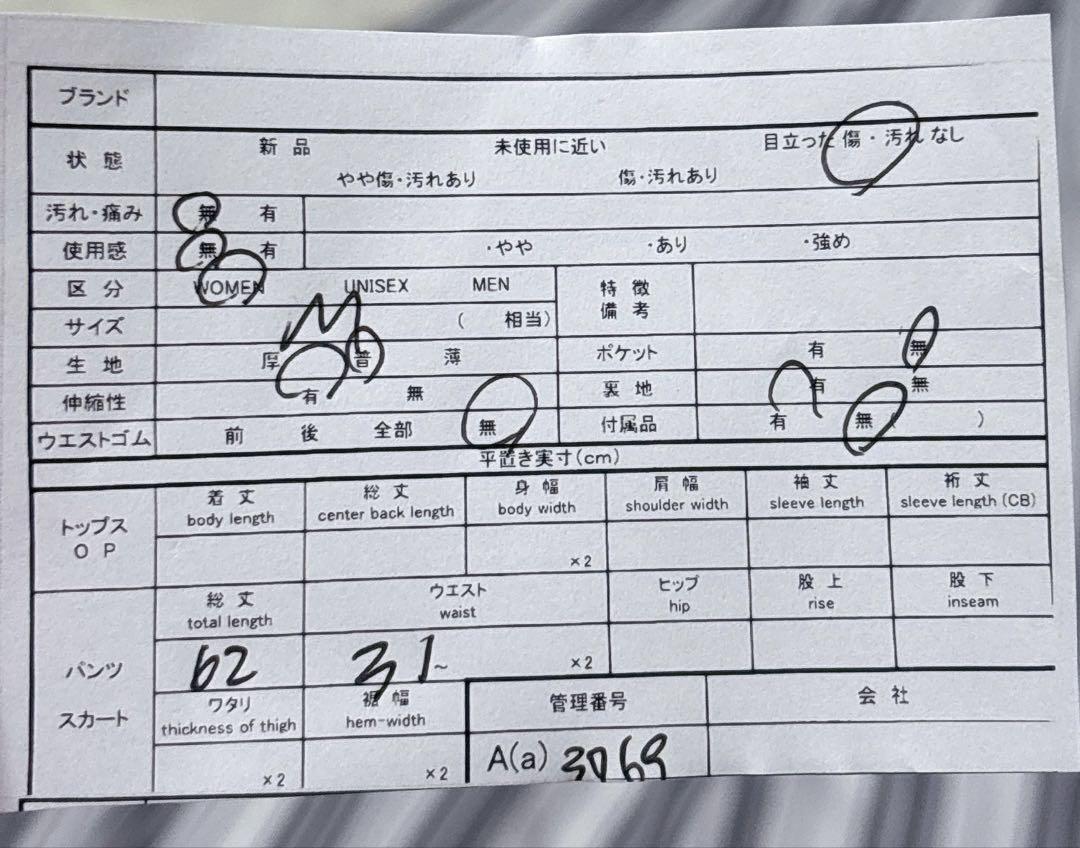 ブランド
状態 新品 未使用に近い 目立った傷・汚れなし
やや傷・汚れあり 傷・汚れあり
汚れ・痛み 無 有
使用感 無 有 ・やや ・あり ・強め
区分 WOMEN UNISEX MEN 特徴備考
サイズ M ( 相当)
生地 厚 普 薄 ポケット 有 無
伸縮性 有 無 裏地 有 無
ウエストゴム 前 後 全部 無 付属品 有 無 ( )
平置き実寸(cm)
トップス OP
着丈 総丈 身幅 肩幅 袖丈 裄丈
body length center back length body width shoulder width sleeve length sleeve length (CB)
×2
パンツ スカート
総丈 ウエスト ヒップ 股上 股下
total length waist hip rise inseam
62 31~ ×2
ワタリ 裾幅 管理番号 会社
thickness of thigh hem-width
×2 ×2 A(a) 3069